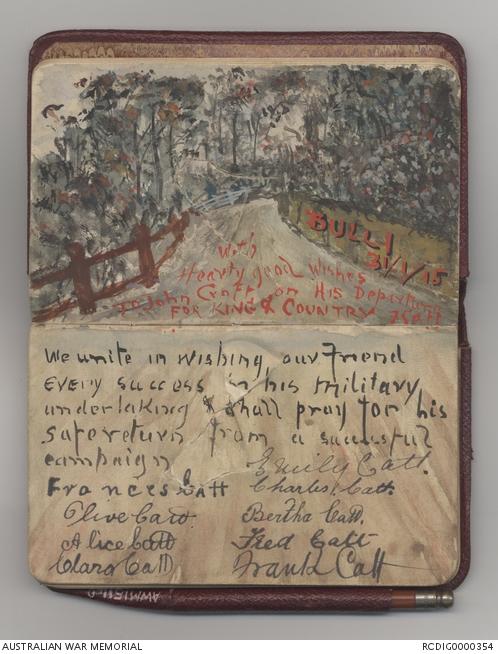 BULLI
31/1/15
With
Hearty good Wishes
To John Croft on His Departure
FOR KING & COUNTRY
We unite in wishing, our Friend
every success in his military
undertaking & shall pray for his
safe return from a successful
campaign
Frances Catt
Emily Catt.
Charles Catt.
Olive Catt.
Bertha Catt.
Alice Catt
Fred Catt
Clara Catt
Frank Catt
AUSTRALIAN WAR MEMORIAL
RCDIG0000354